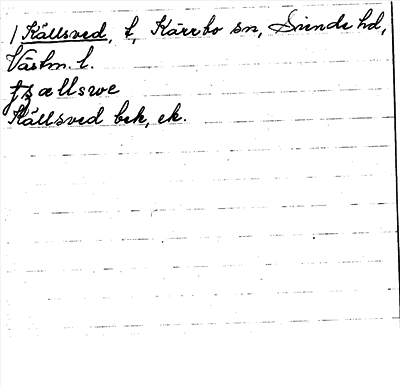 / Källsved, t, Kärrbo sn, Siende hd,
Västm. l.
källswe
Källsved bek, ek.